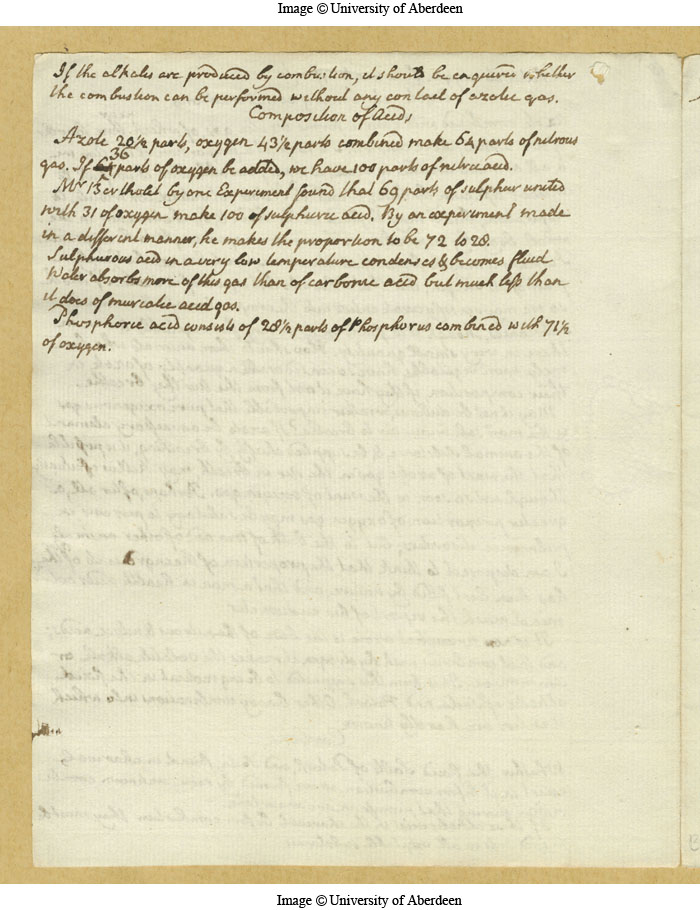 Image © University of Aberdeen
If the alkalies are produced by combustion, it should be enquired whether
the combustion can be performed without any contact of azotic gas.
Composition of Acids
Azote 20½ parts, oxygen 43½ parts combined make 64 parts of nitrous
36
gas. If parts of oxygen be added, we have 100 parts of nitric acid.
Mr Bertholet by one Experiment found that 69 parts of sulphur united
with 31 of oxygen make 100 of sulphuric acid. By an experiment made
in a different manner, he makes the proportion to be 72 to 28.
Sulphurous acid in a very low temperature condenses & becomes fluid
Water absorbs more of this gas than of carbonic acid but much less than
it does of muriatic acid gas.
Phosphoric acid consists of 28½ parts of Phosphorus combined with 71½
of oxygen.
Image © University of Aberdeen